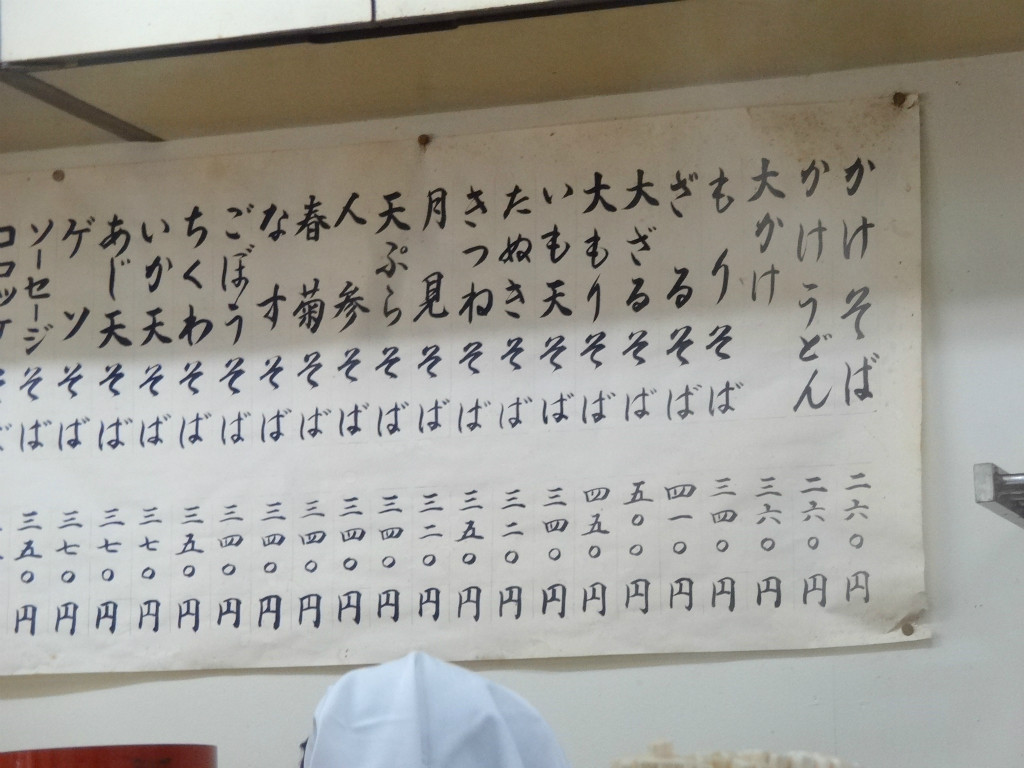 かけそば 二六〇円
かけうどん 二六〇円
大かけ 三六〇円
もりそば 三四〇円
ざるそば 四一〇円
大ざるそば 五〇〇円
大もりそば 四五〇円
いも天そば 三四〇円
たぬきそば 三二〇円
きつねそば 三五〇円
月見そば 三二〇円
天ぷらそば 三四〇円
人参そば 三四〇円
春菊そば 三四〇円
なすそば 三四〇円
ごぼうそば 三四〇円
ちくわそば 三五〇円
いか天そば 三七〇円
あじ天そば 三七〇円
ゲソそば 三七〇円
ソーセージそば 三五〇円
コロッケそば